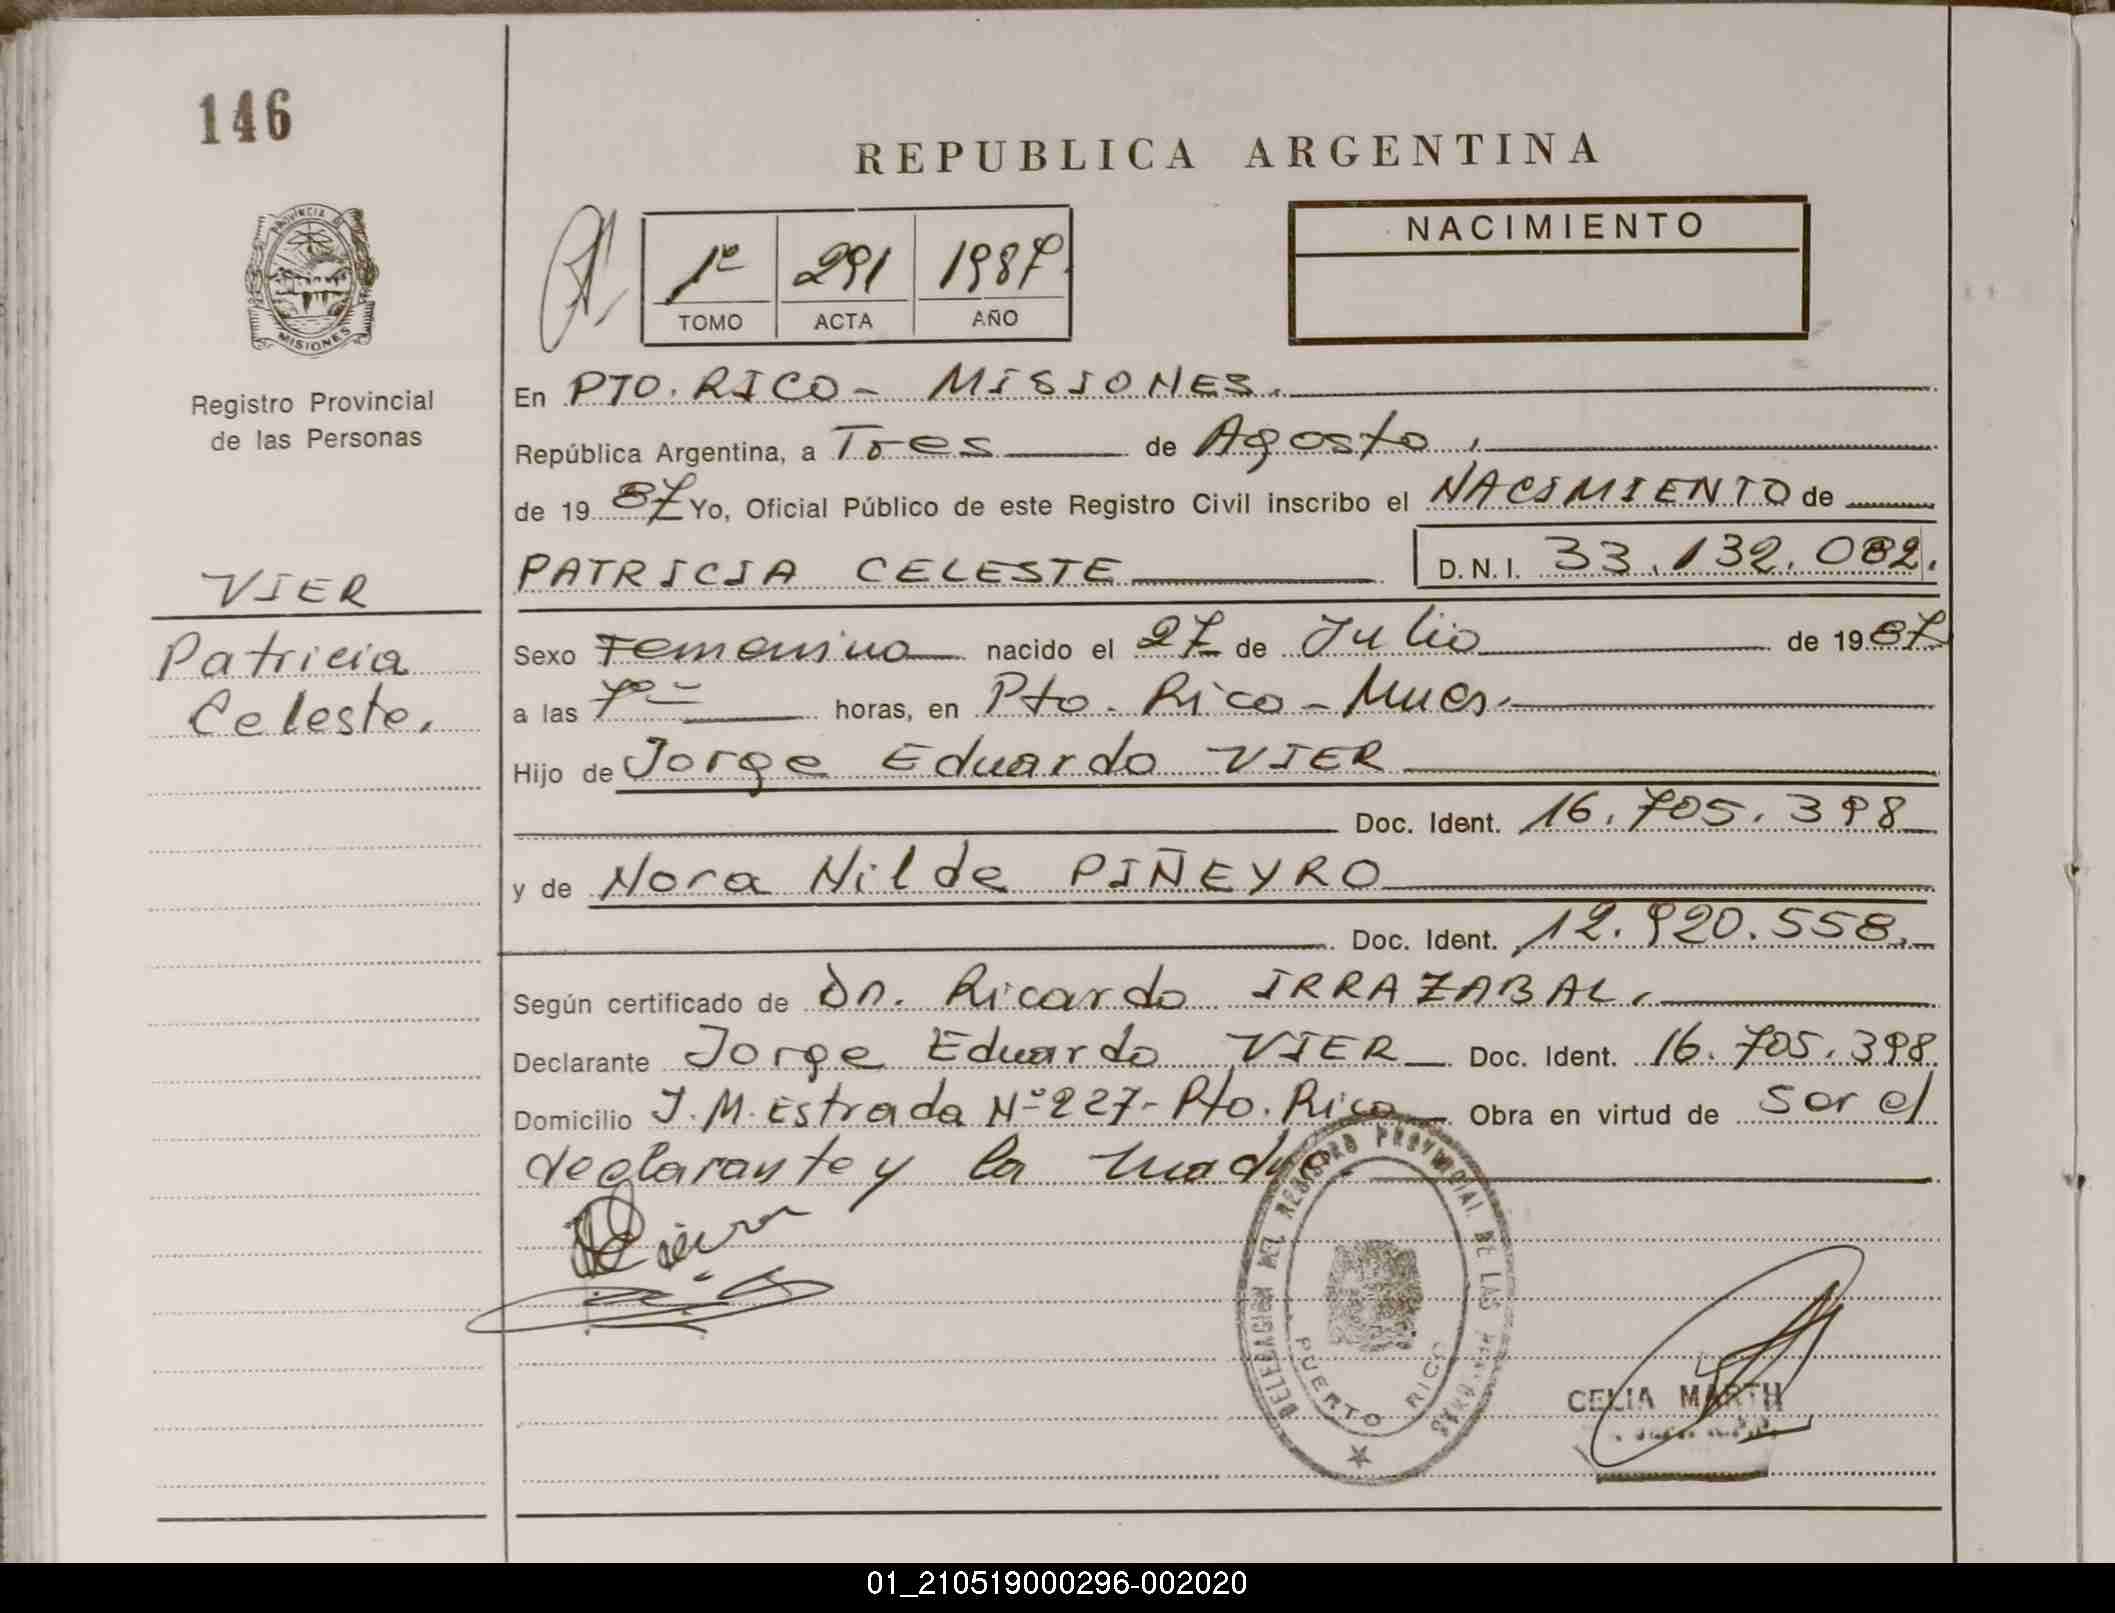 146
REPUBLICA ARGENTINA
PROVINCIA DE MISIONES
Registro Provincial
de las Personas
1º 291 1987
TOMO ACTA AÑO
NACIMIENTO
En PTO. RICO - MISIONES.
República Argentina, a Tres de Agosto,
de 19 87 Yo, Oficial Público de este Registro Civil inscribo el NACIMIENTO de
PATRICIA CELESTE D.N.I. 33.132.082.
VIER
Patricia
Celeste.
Sexo Femenino nacido el 27 de Julio de 19 87
a las 7º horas, en Pto. Rico - Mnes.
Hijo de Jorge Eduardo VIER
Doc. Ident. 16.705.398
y de Nora Nilde PIÑEYRO
Doc. Ident. 12.920.558.
Según certificado de Dn. Ricardo IRRAZABAL.
Declarante Jorge Eduardo VIER Doc. Ident. 16.705.398.
Domicilio J.M. Estrada Nº 227 - Pto. Rico Obra en virtud de ser el
declarante y la madre.
DELEGACION DEL REGISTRO PROVINCIAL DE LAS PERSONAS
PUERTO RICO
CELIA MARTH
01_210519000296-002020